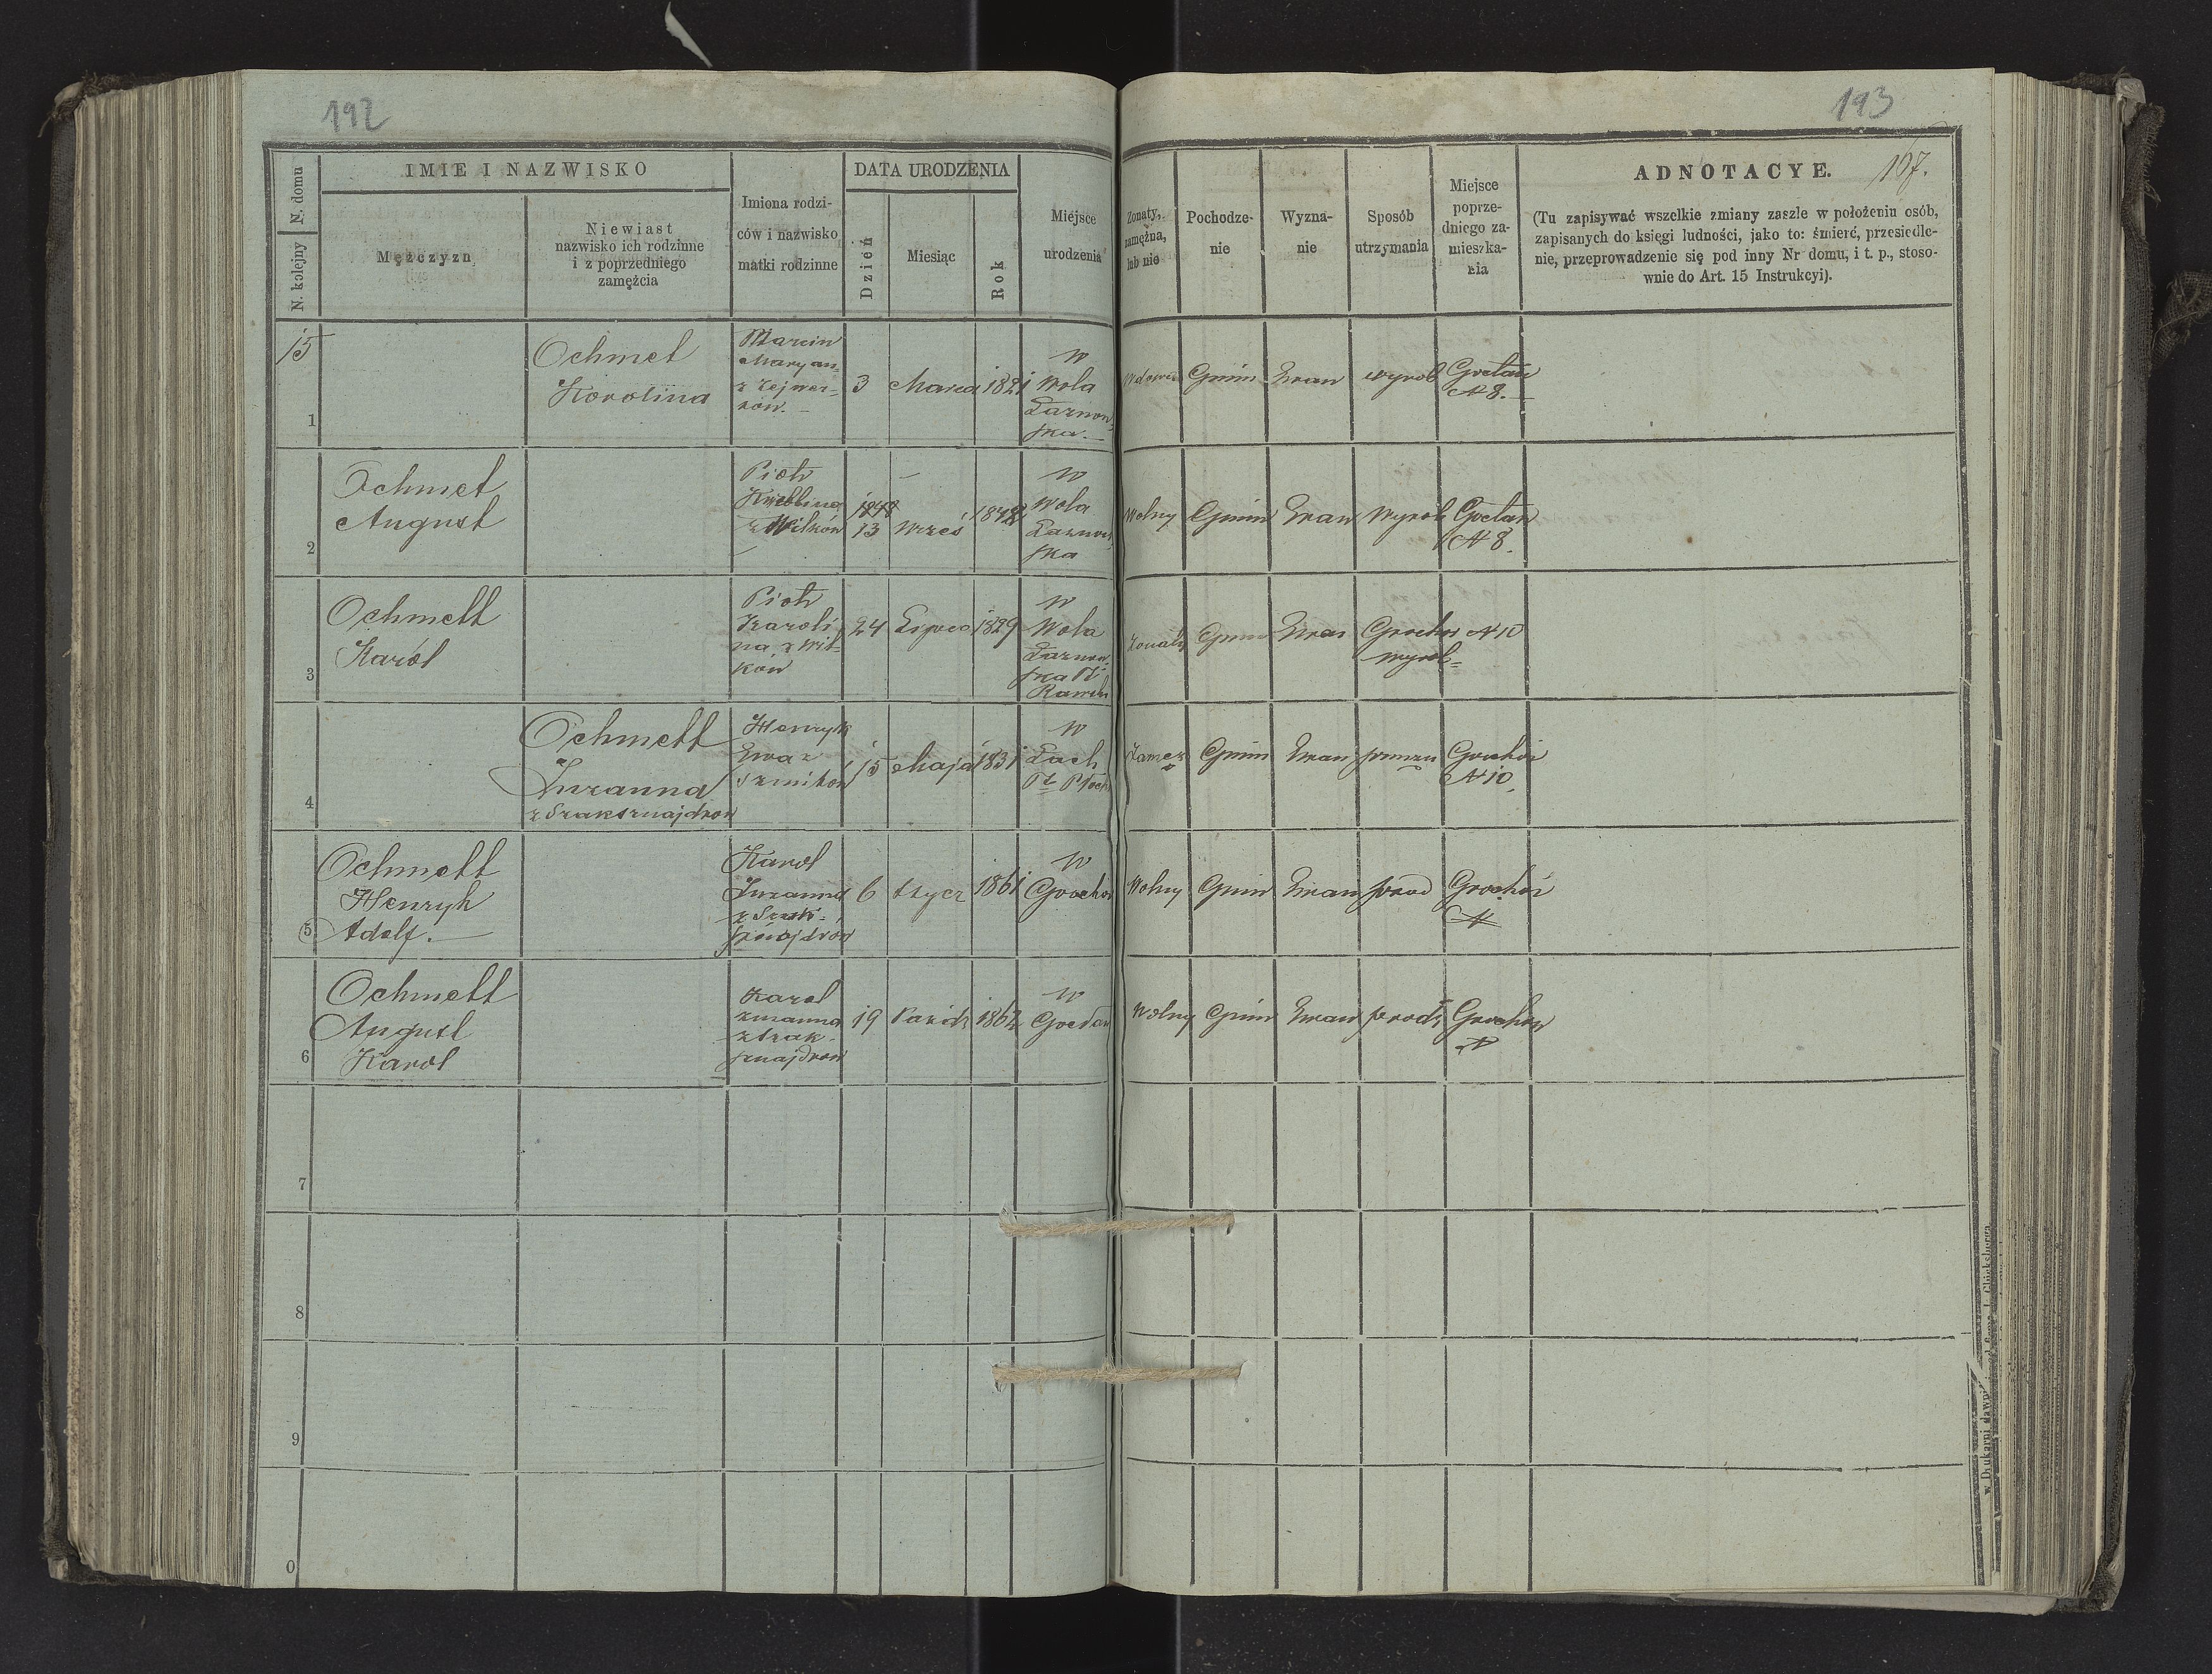 192
193
167.
N. domu
N. kolejny
IMIE I NAZWISKO
Mężczyzn
Niewiast
nazwisko ich rodzinne
i z poprzedniego
zamężcia
Imiona rodzi-
ców i nazwisko
matki rodzinne
DATA URODZENIA
Dzień
Miesiąc
Rok
Miejsce
urodzenia
Żonaty,
zamężna,
lub nie
Pochodze-
nie
Wyzna-
nie
Sposób
utrzymania
Miejsce
poprze-
dniego za-
mieszka-
nia
ADNOTACYE.
(Tu zapisywać wszelkie zmiany zaszłe w położeniu osób,
zapisanych do księgi ludności, jako to: śmierć, przesiedle-
nie, przeprowadzenie się pod inny Nr domu, i t. p., stoso-
wnie do Art. 15 Instrukcyi).
15
1
Ochmet
Karolina
Marcin
Maryan
3
Marca
1821
w
Wola
Gmin
Ewan
wyrob
N 8.
2
Ochmet
August
Piotr
z Wilków
13
Wrześ
w
Wola
Wolny
Gmin
Ewan
Wyrob
N 8.
3
Ochmett
Karól
Piotr
Karoli
na z Wil
ków
24
Lipca
1829
w
Wola
Żonaty
Gmin
Ewan
Grochów N 10
wyrob
4
Ochmett
Zuzanna
z Szaksznajdrów
Henryk
Ewa z
Szmitów
15
Maja
1831
w
Łach
Pt Płock
Zamęz
Gmin
Ewan
Grochów
N 10,
5
Ochmett
Henryk
Adolf.
Karol
Zuzanna
6
Stycz
1861
w
Grochów
Wolny
Gmin
Ewan
Grochów
N
6
Ochmett
August
Karol
Karol
Zuzanna
z Szak-
sznajdrów
19
Paźdz
1862
w
Wolny
Gmin
Ewan
Grochów
N
7
8
9
0